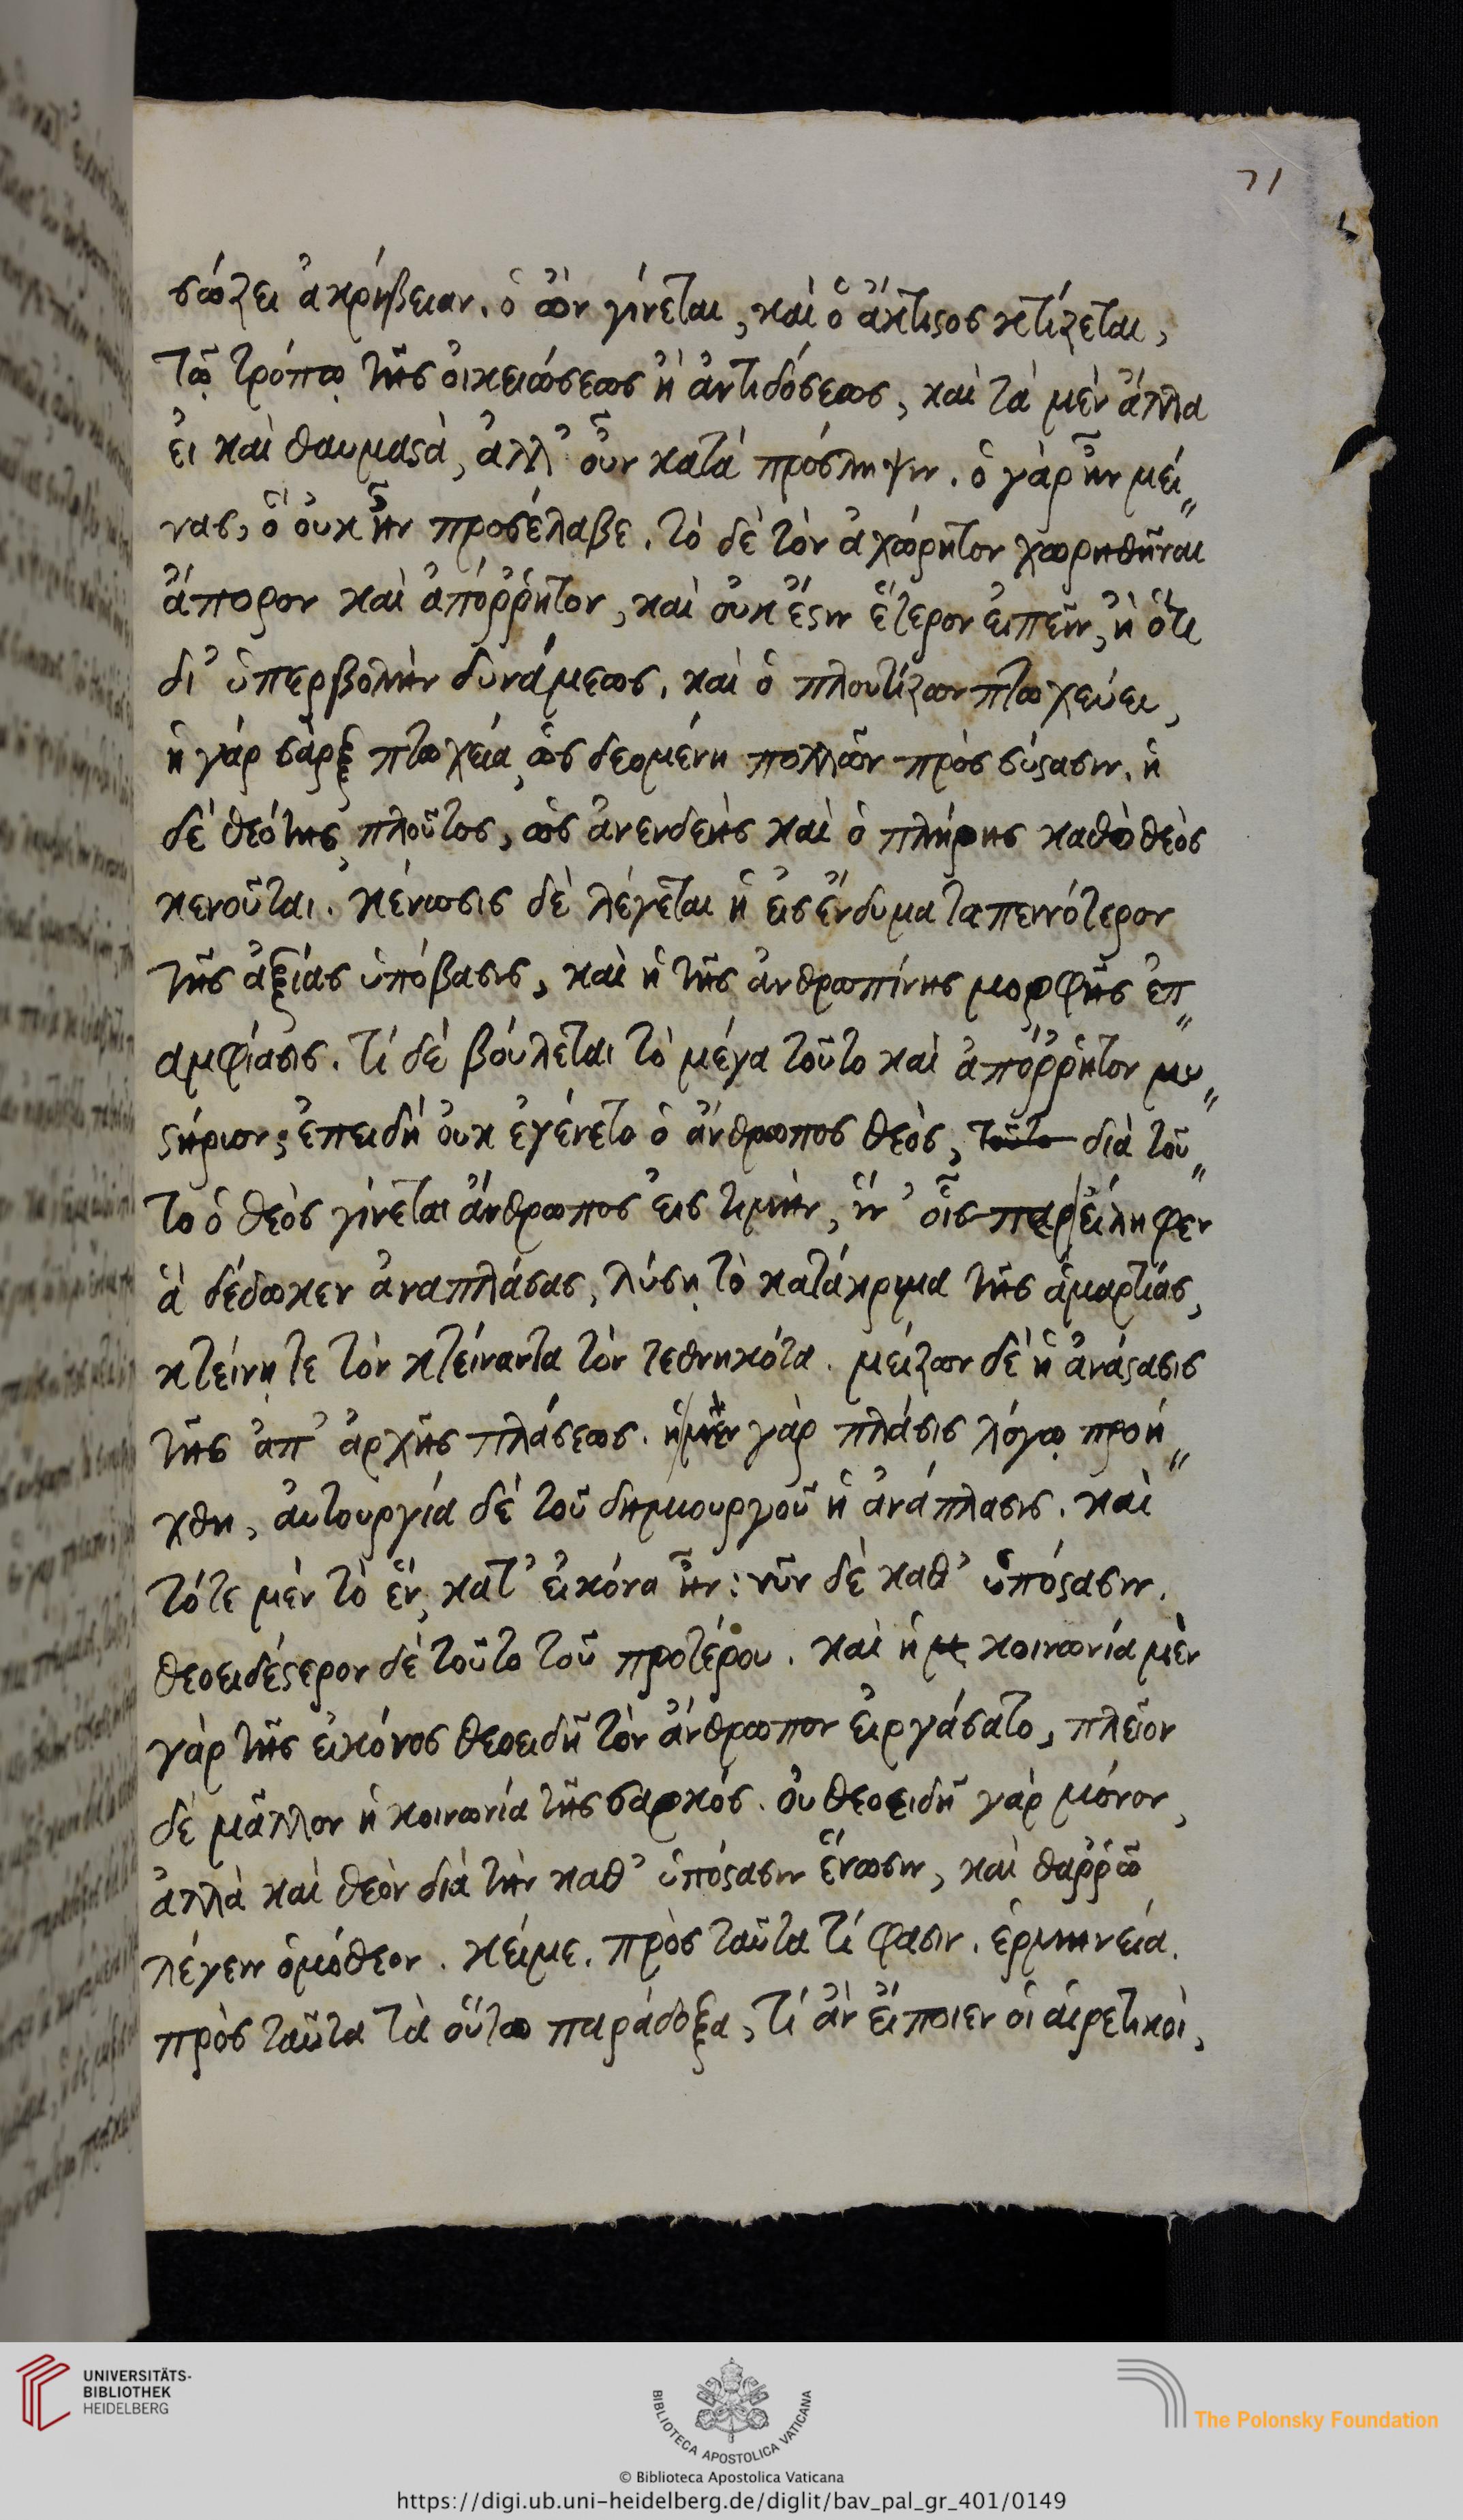 71
σώζει ἀκρίβειαν. ὁ ὢν γίνεται, καὶ ὁ ἄκτιϛος κτίζεται,
τῷ τρόπῳ τῆς οἰκειώσεως ἢ ἀντιδόσεως, καὶ τὰ μὲν ἄλλα
εἰ καὶ θαυμαϛὰ, ἀλλ' οὖν κατὰ πρόσληψιν. ὁ γὰρ ἦν μεί〃
νας, ὃ οὐκ ἦν προσέλαβε. τὸ δὲ τὸν ἀχώρητον χωρηθῆναι
ἄπορον καὶ ἀπόῤῥητον, καὶ οὐκ ἔϛιν ἕτερον εἰπεῖν, ἢ ὅτι
δι' ὑπερβολὴν δυνάμεως. καὶ ὁ πλουτίζων πτωχεύει,
ἡ γάρ σὰρξ πτωχεία, ὡς δεομένη πολλῶν πρὸς σύϛασιν. ἡ
δὲ θεότης, πλοῦτος, ὡς ἀνενδεὴς καὶ ὁ πλήρης καθὸ θεὸς
κενοῦται. κένωσις δὲ λέγεται ἡ εἰς ἔνδυμα ταπεινότερον
τῆς ἀξίας ὑπόβασις, καὶ ἡ τῆς ἀνθρωπίνης μορφῆς ἐπ〃
αμφίασις. τί δὲ βούλεται τὸ μέγα τοῦτο καὶ ἀπόῤῥητον μυ〃
ϛήριον; ἐπειδὴ οὐκ ἐγένετο ὁ ἄνθρωπος θεὸς, τοῦτο διὰ τοῦ〃
το ὁ θεὸς γίνεται ἄνθρωπος εἰς τιμὴν, ἵν' οἷς παρείληφεν
ἃ δέδωκεν ἀναπλάσας, λύσῃ τὸ κατάκριμα τῆς ἁμαρτίας,
κτείνῃ τε τὸν κτείναντα τὸν τεθνηκότα. μείζων δὲ ἡ ἀνάϛασις
τῆς ἀπ' ἀρχῆς πλάσεως. ἡ μὲν γὰρ πλάσις λόγῳ προή〃
χθη, αὐτουργία δὲ τοῦ δημιουργοῦ ἡ ἀνάπλασις. καὶ
τότε μὲν τὸ ἓν, κατ' εἰκόνα ἦν: νῦν δὲ καθ' ὑπόϛασιν.
θεοειδέϛερον δὲ τοῦτο τοῦ προτέρου. καὶ ἡ με κοινωνία μὲν
γὰρ τῆς εἰκόνος θεοειδῆ τὸν ἄνθρωπον εἰργάσατο, πλεῖον
δὲ μᾶλλον ἡ κοινωνία τῆς σαρκός. οὐ θεοειδῆ γὰρ μόνον,
ἀλλὰ καὶ θεὸν διὰ τὴν καθ' ὑπόϛασιν ἕνωσιν, καὶ θαῤῥῶ
λέγειν ὁμόθεον. κείμε. πρὸς ταῦτα τί φασιν. ἑρμηνεία.
πρὸς ταῦτα τὰ οὕτω παράδοξα, τί ἂν εἴποιεν οἱ αἱρετικοὶ,
UNIVERSITÄTS-
BIBLIOTHEK
HEIDELBERG
BIBLIOTECA APOSTOLICA VATICANA
The Polonsky Foundation
© Biblioteca Apostolica Vaticana
https://digi.ub.uni-heidelberg.de/diglit/bav_pal_gr_401/0149